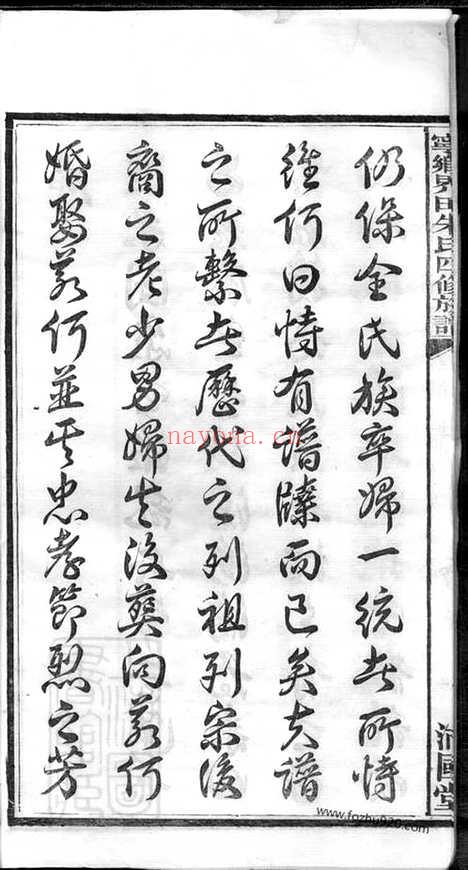 寧鄉界田朱氏四修族譜
沛國堂
仍保全民族卒歸一統者所恃
維何曰恃有譜牒而已矣夫譜
之所繫者歷代之列祖列宗後
裔之老少男婦生没葬向若何
婚娶若何並其忠孝節烈之芳
nayona.cn
www.fozhu920.com